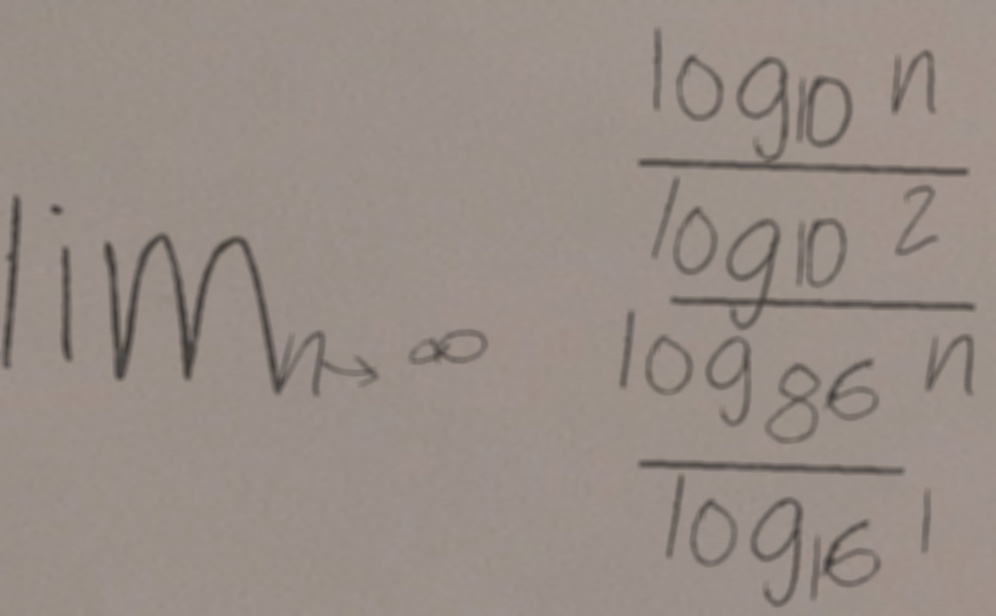 lim n→∞
log10 n
log10 2
log86 n
log16 1